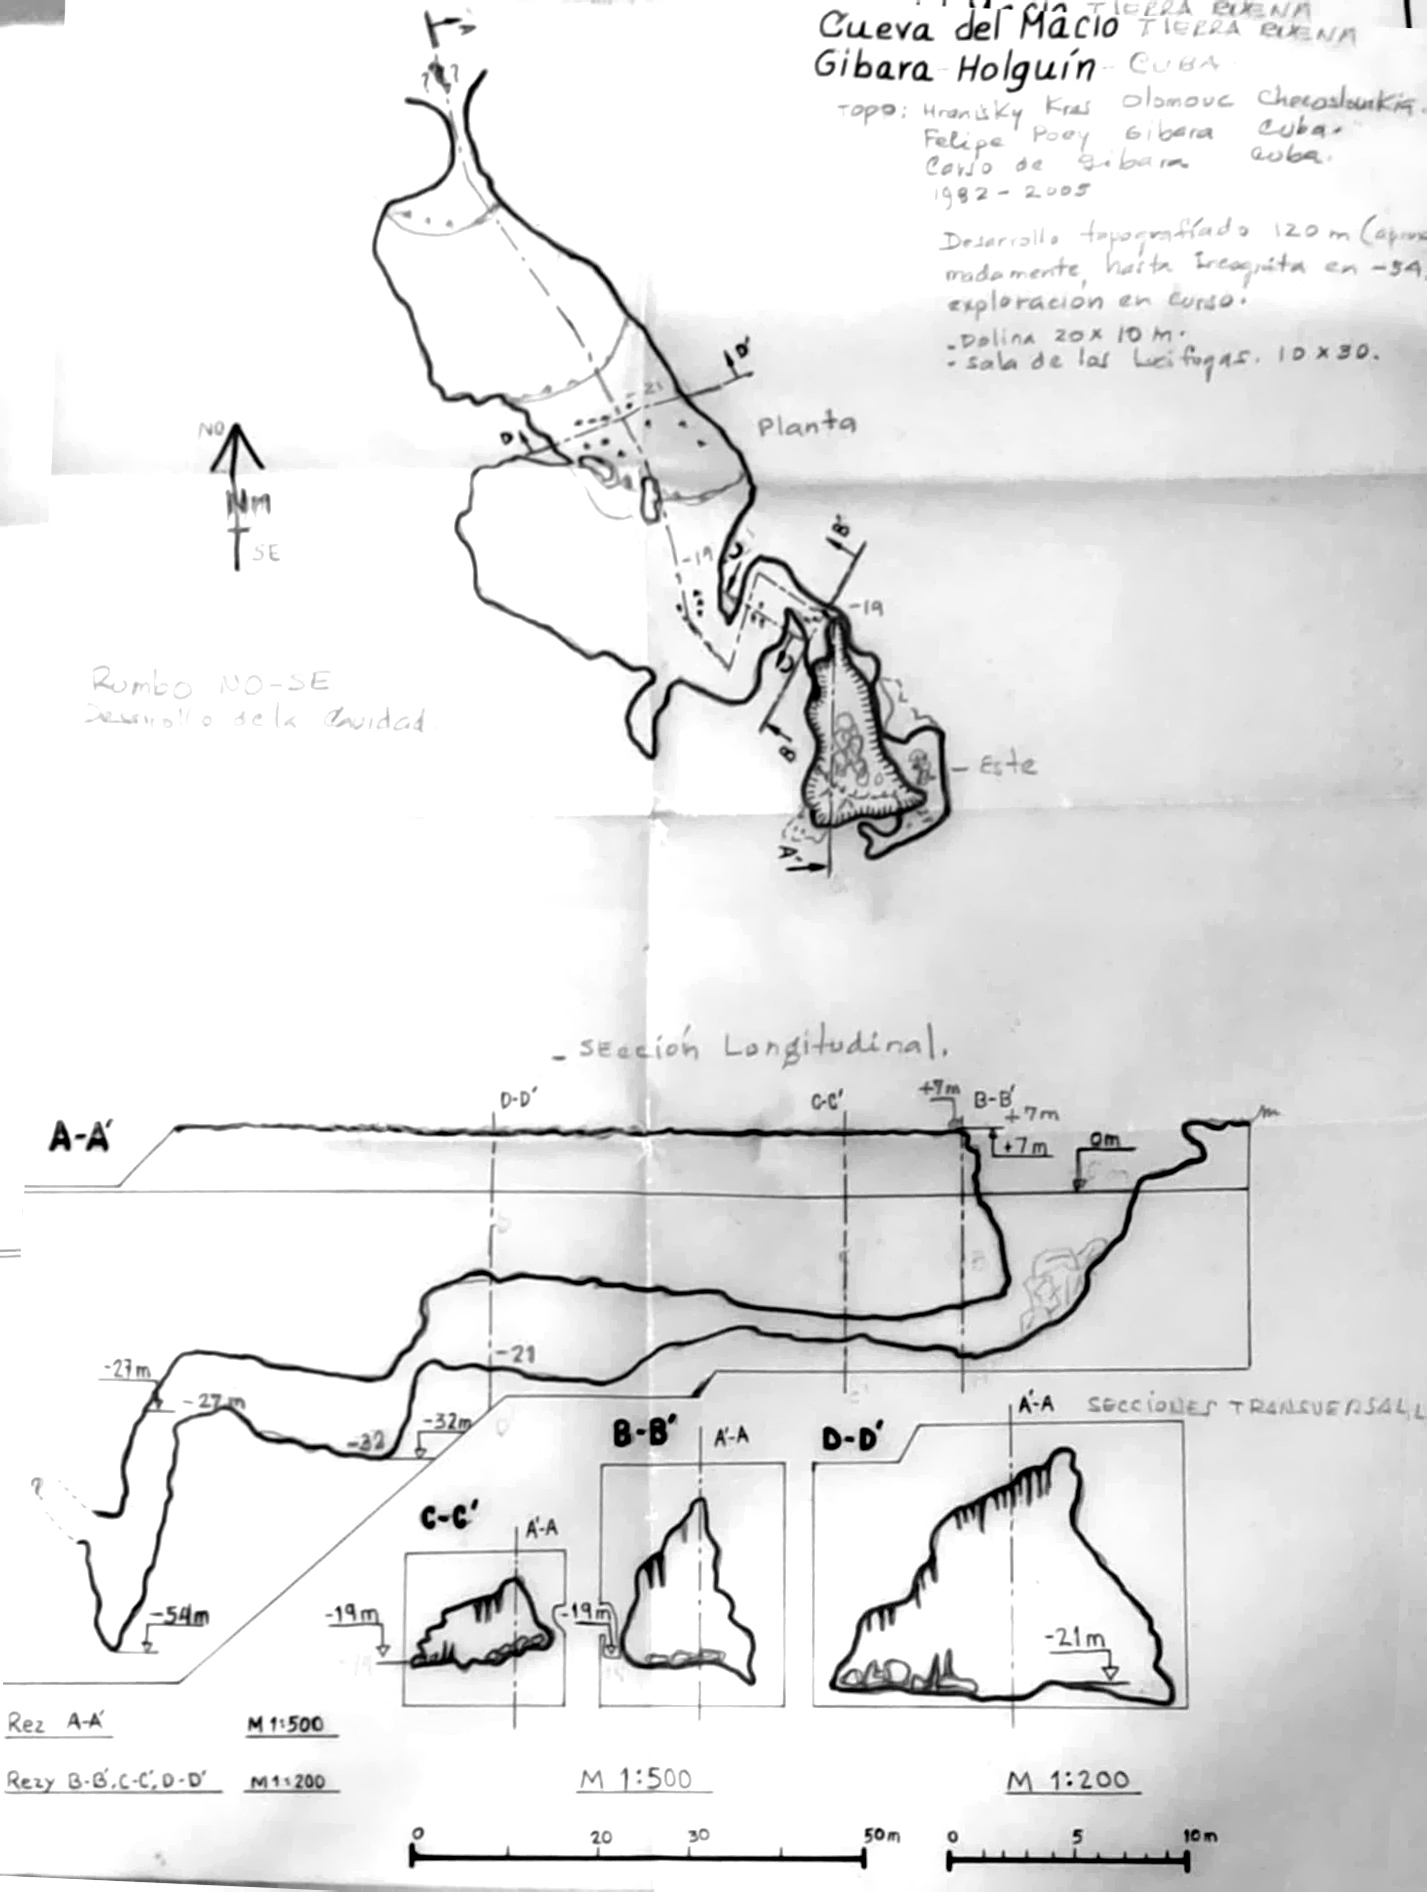 TIERRA BUENA
Cueva del Macío TIERRA BUENA
Gibara-Holguín - CUBA
Topo: Hranisky Kras Olomouc
Felipe Poey Gibara Cuba.
de Gibara Cuba.
1982 - 2005
Desarrollo topografiado 120 m
madamente, hasta Incognita en -54,
exploración en curso.
- Dolina 20 x 10 m.
- Sala de las Lucifogas. 10 x 30.
D'
-21
Planta
NO
D
Nm
SE
B'
-19
C'
-19
C
Rumbo NO-SE
Desarrollo de la Cavidad.
B
- Este
A'
- Sección Longitudinal.
D-D'
C-C'
+7m
B-B'
+7m
A-A'
+7m
0m
-21
-27m
-27m
-32m
-32
A'-A
SECCIONES TRANSVERSAL
B-B'
A'-A
D-D'
?
C-C'
A'-A
-54m
-19m
-19m
-21m
Rez A-A'
M 1:500
Rezy B-B', C-C', D-D'
M 1:200
M 1:500
M 1:200
0 20 30 50m
0 5 10m